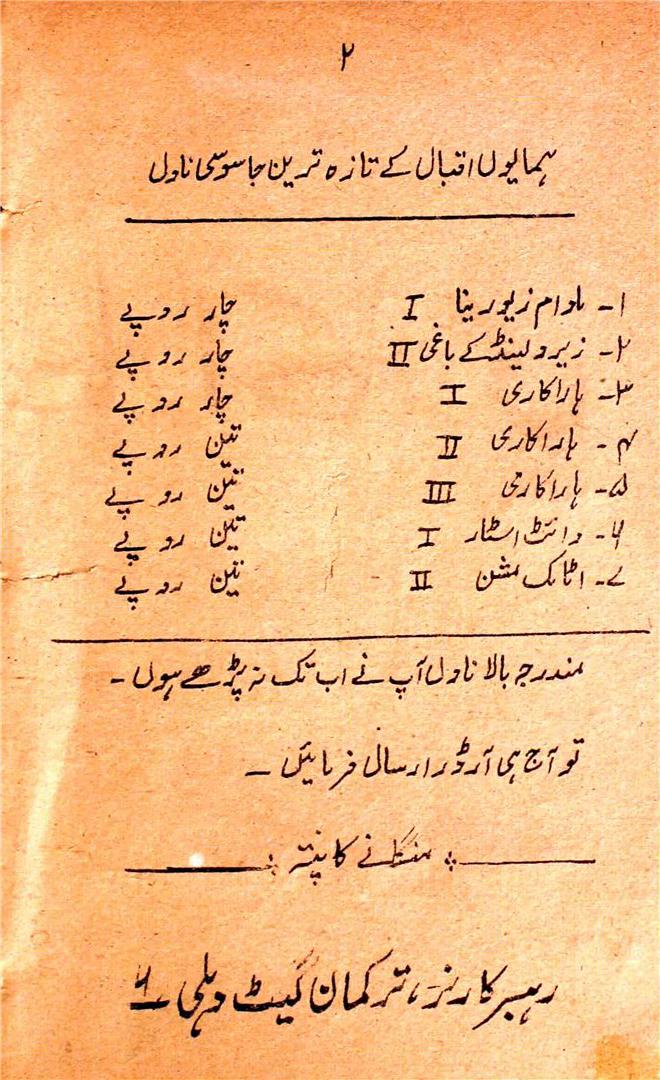 ۲
ہمایوں اقبال کے تازہ ترین جاسوسی ناول
۱۔ مادام زیورینا I چار روپے
۲۔ زیرو لینڈ کے باغی II چار روپے
۳۔ ہاراکاری I چار روپے
۴۔ ہاراکاری II تین روپے
۵۔ ہاراکاری III تین روپے
۶۔ وائٹ اسٹار I تین روپے
۷۔ اٹامک مشن II تین روپے
مندرجہ بالا ناول آپ نے اب تک نہ پڑھے ہوں۔
تو آج ہی آرڈر ارسال فرمائیں۔
منگانے کا پتہ
رہبر کارنر، ترکمان گیٹ دہلی ۶